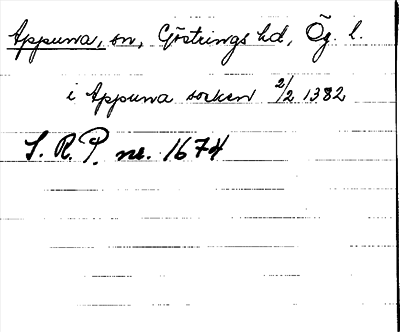 Appuna, sn, Göstrings hd, Ög. l.
i Appuna socken 2/2 1382
S. R. P. nr. 1674